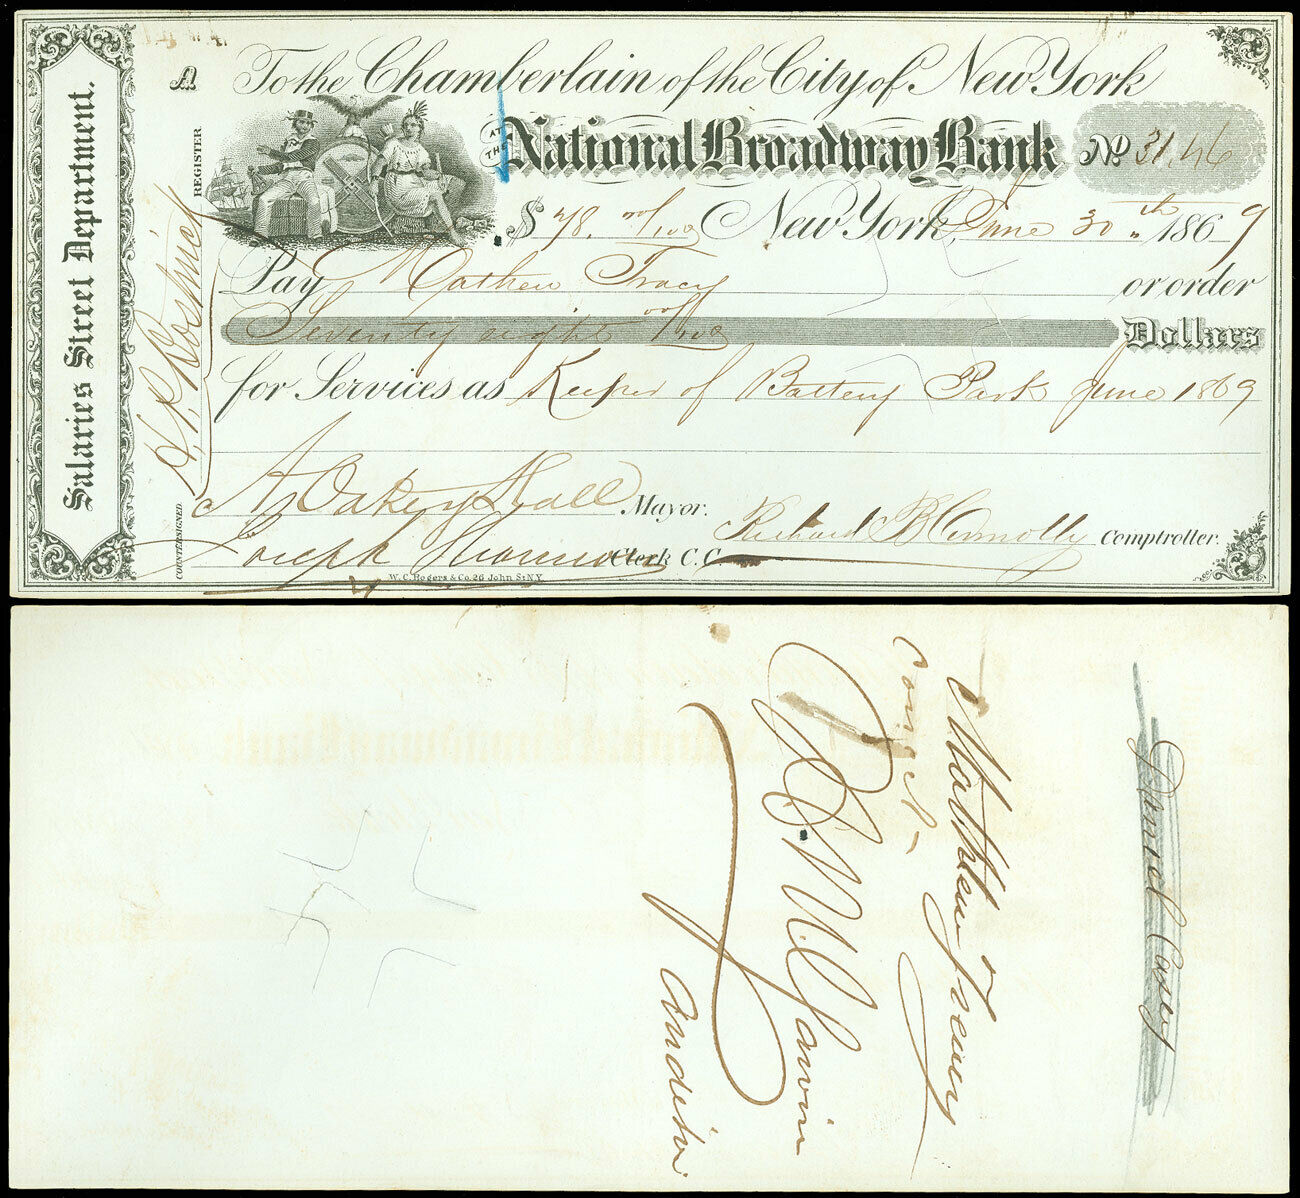 Salaries Street Department.
A
To the Chamberlain of the City of New York
REGISTER
AT THE
National Broadway Bank No 3146
$ 78. 00/100 New York, June 30th 1869
Pay Mathew Tracy or order
Seventy eight 00/100 Dollars
for Services as Keeper of Battery Park June 1869
COUNTERSIGNED
A Oakey Hall Mayor.
Richard B Connolly Comptroller.
Joseph Clerk C. C.
W. C. Rogers & Co. 26 John St. N.Y.
Matthew Tracey
correct
Auditor
Daniel Casey